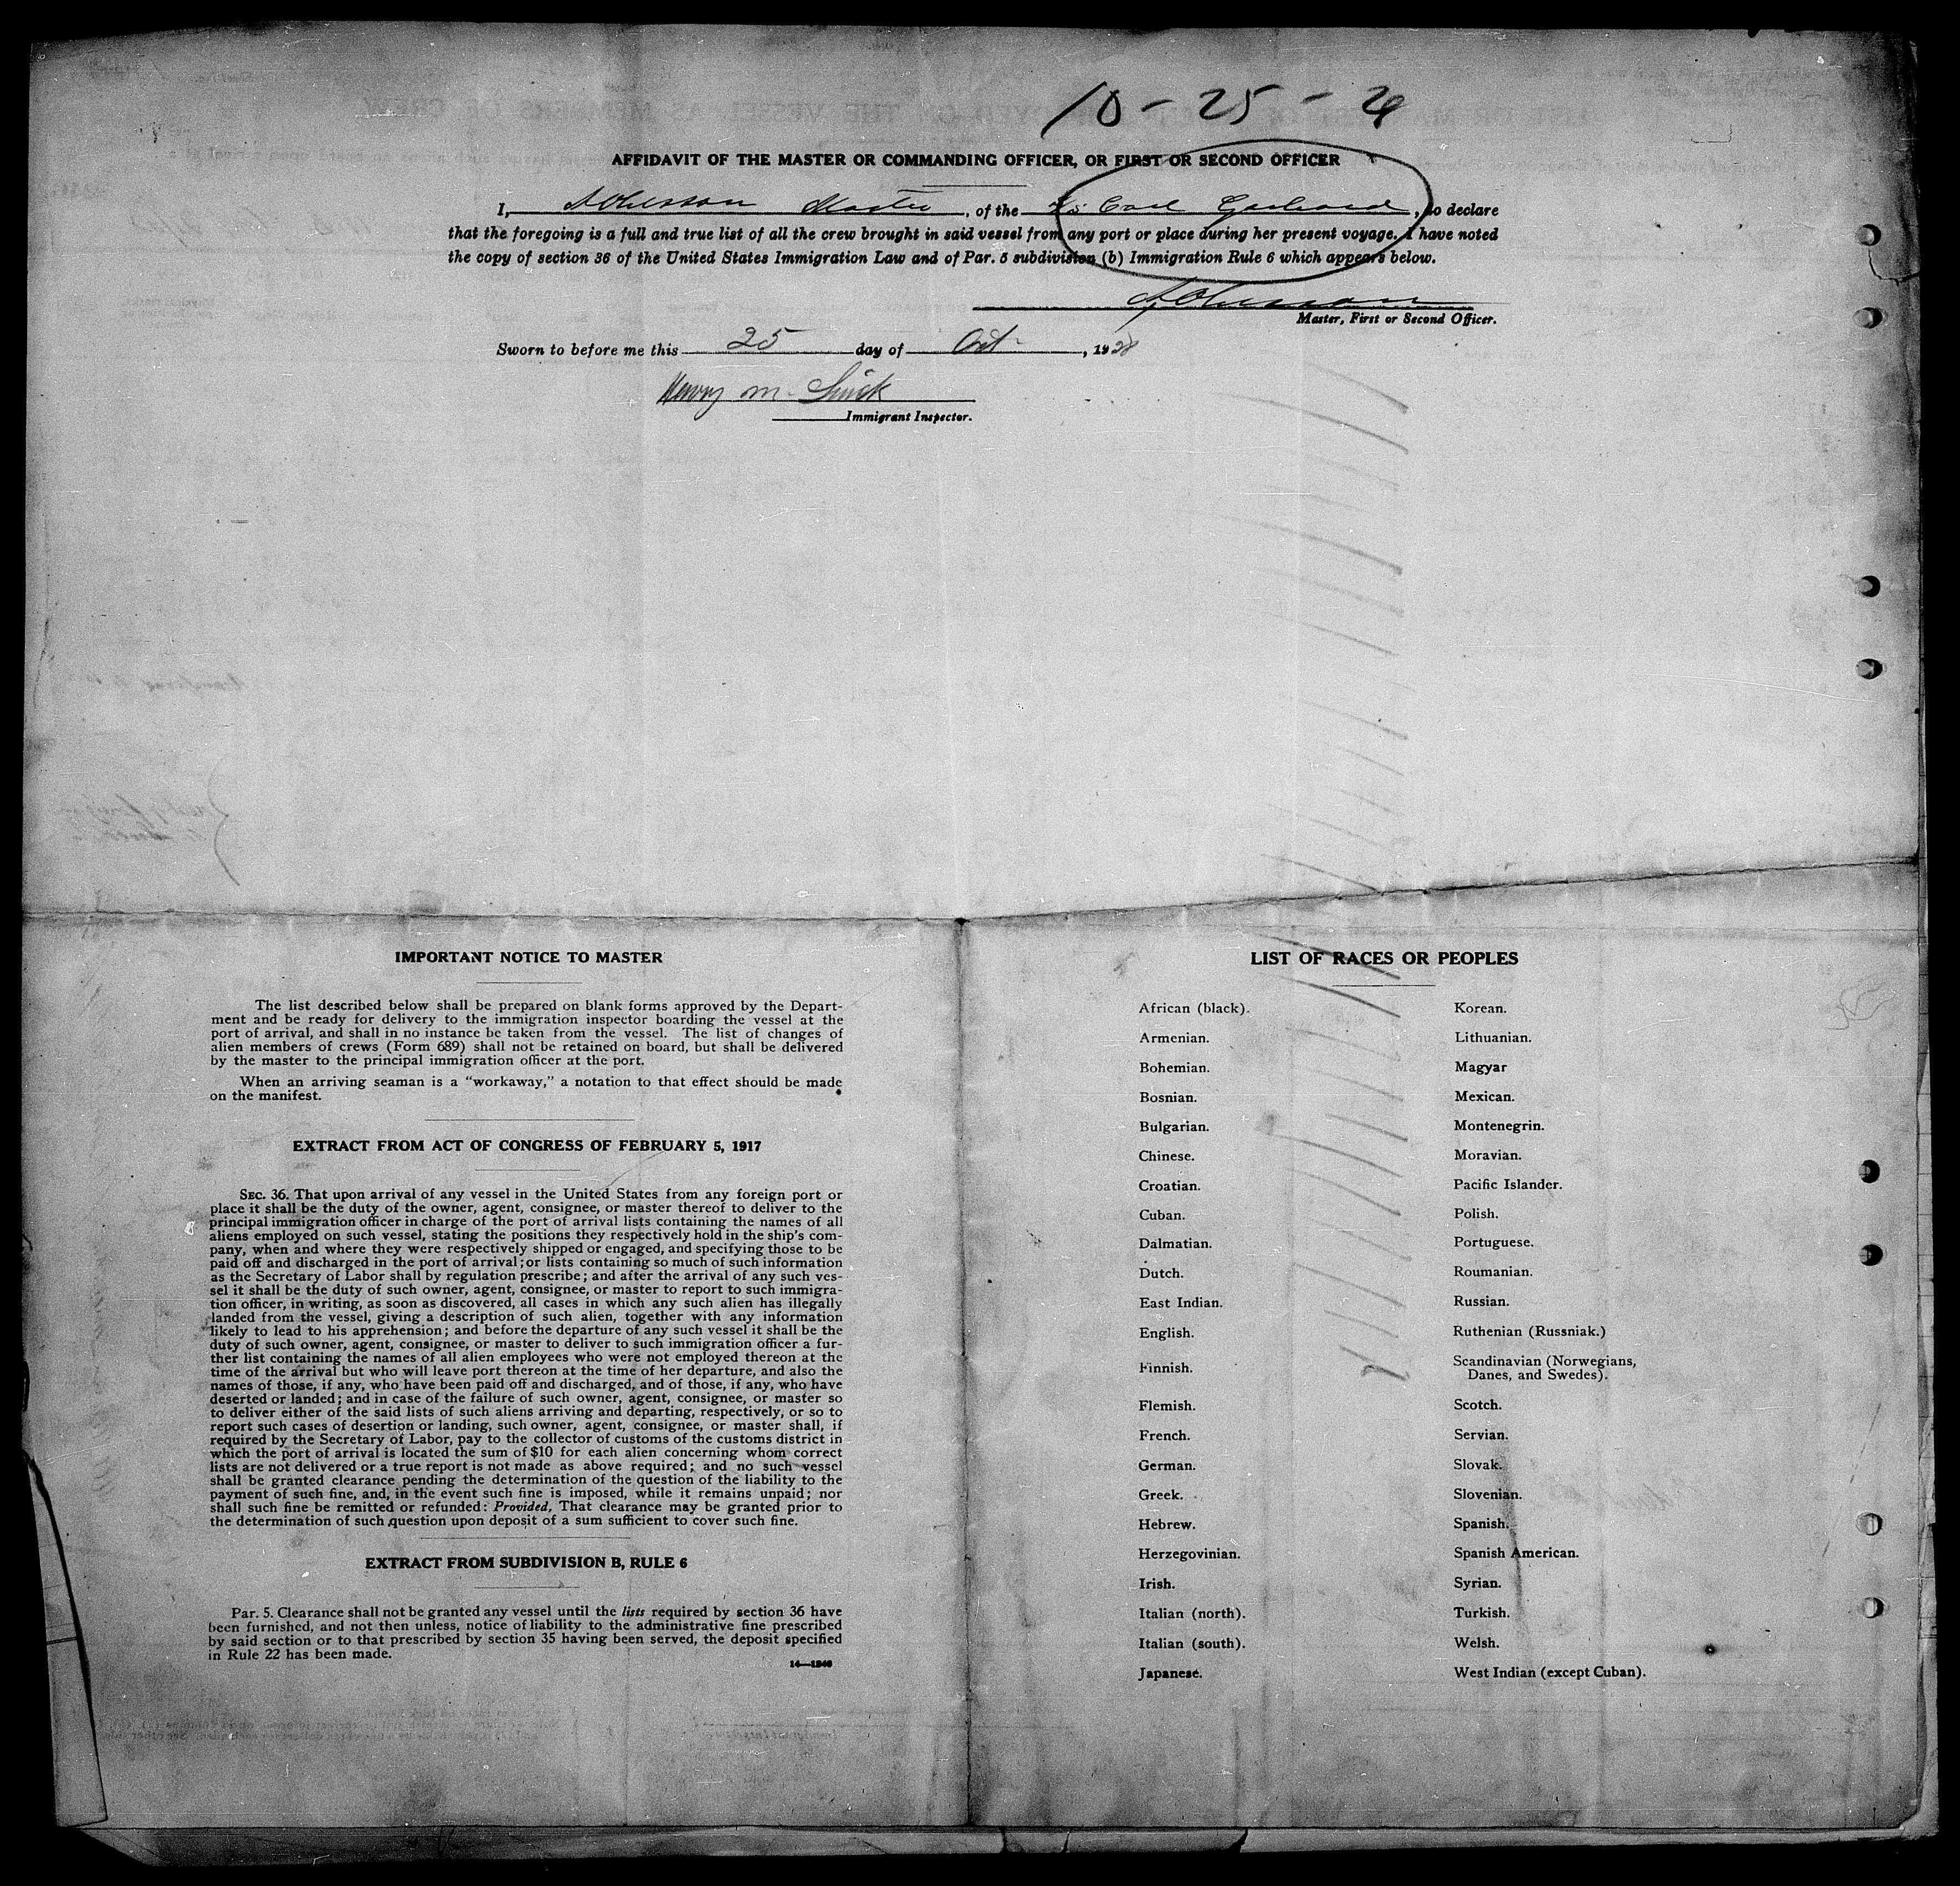 10 - 25 - 2
AFFIDAVIT OF THE MASTER OR COMMANDING OFFICER, OR FIRST OR SECOND OFFICER
I, Master, of the Carl Gerhard, do declare
that the foregoing is a full and true list of all the crew brought in said vessel from any port or place during her present voyage. I have noted
the copy of section 36 of the United States Immigration Law and of Par. 5 subdivision (b) Immigration Rule 6 which appears below.
Master, First or Second Officer.
Sworn to before me this 25 day of Oct, 192
Henry M.
Immigrant Inspector.
IMPORTANT NOTICE TO MASTER
The list described below shall be prepared on blank forms approved by the Depart-
ment and be ready for delivery to the immigration inspector boarding the vessel at the
port of arrival, and shall in no instance be taken from the vessel. The list of changes of
alien members of crews (Form 689) shall not be retained on board, but shall be delivered
by the master to the principal immigration officer at the port.
When an arriving seaman is a “workaway,” a notation to that effect should be made
on the manifest.
EXTRACT FROM ACT OF CONGRESS OF FEBRUARY 5, 1917
SEC. 36. That upon arrival of any vessel in the United States from any foreign port or
place it shall be the duty of the owner, agent, consignee, or master thereof to deliver to the
principal immigration officer in charge of the port of arrival lists containing the names of all
aliens employed on such vessel, stating the positions they respectively hold in the ship's com-
pany, when and where they were respectively shipped or engaged, and specifying those to be
paid off and discharged in the port of arrival; or lists containing so much of such information
as the Secretary of Labor shall by regulation prescribe; and after the arrival of any such ves-
sel it shall be the duty of such owner, agent, consignee, or master to report to such immigra-
tion officer, in writing, as soon as discovered, all cases in which any such alien has illegally
landed from the vessel, giving a description of such alien, together with any information
likely to lead to his apprehension; and before the departure of any such vessel it shall be the
duty of such owner, agent, consignee, or master to deliver to such immigration officer a fur-
ther list containing the names of all alien employees who were not employed thereon at the
time of the arrival but who will leave port thereon at the time of her departure, and also the
names of those, if any, who have been paid off and discharged, and of those, if any, who have
deserted or landed; and in case of the failure of such owner, agent, consignee, or master so
to deliver either of the said lists of such aliens arriving and departing, respectively, or so to
report such cases of desertion or landing, such owner, agent, consignee, or master shall, if
required by the Secretary of Labor, pay to the collector of customs of the customs district in
which the port of arrival is located the sum of $10 for each alien concerning whom correct
lists are not delivered or a true report is not made as above required; and no such vessel
shall be granted clearance pending the determination of the question of the liability to the
payment of such fine, and, in the event such fine is imposed, while it remains unpaid; nor
shall such fine be remitted or refunded: Provided, That clearance may be granted prior to
the determination of such question upon deposit of a sum sufficient to cover such fine.
EXTRACT FROM SUBDIVISION B, RULE 6
Par. 5. Clearance shall not be granted any vessel until the lists required by section 36 have
been furnished, and not then unless, notice of liability to the administrative fine prescribed
by said section or to that prescribed by section 35 having been served, the deposit specified
in Rule 22 has been made.
14—1240
LIST OF RACES OR PEOPLES
African (black).
Armenian.
Bohemian.
Bosnian.
Bulgarian.
Chinese.
Croatian.
Cuban.
Dalmatian.
Dutch.
East Indian.
English.
Finnish.
Flemish.
French.
German.
Greek.
Hebrew.
Herzegovinian.
Irish.
Italian (north).
Italian (south).
Japanese.
Korean.
Lithuanian.
Magyar
Mexican.
Montenegrin.
Moravian.
Pacific Islander.
Polish.
Portuguese.
Roumanian.
Russian.
Ruthenian (Russniak.)
Scandinavian (Norwegians,
Danes, and Swedes).
Scotch.
Servian.
Slovak.
Slovenian.
Spanish.
Spanish American.
Syrian.
Turkish.
Welsh.
West Indian (except Cuban).